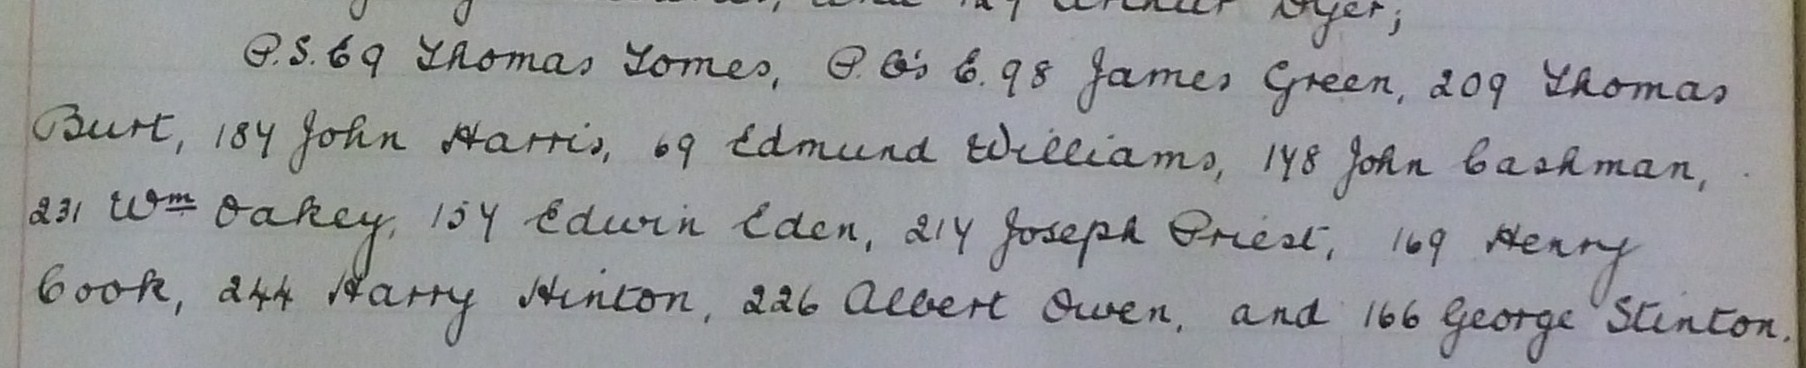 and Arthur Dyer;
P.S. 69 Thomas Tomes, P.C's C. 98 James Green, 209 Thomas
Burt, 184 John Harris, 69 Edmund Williams, 148 John Cashman,
231 Wm Oakey, 154 Edwin Eden, 214 Joseph Priest, 169 Henry
Cook, 244 Harry Hinton, 226 Albert Owen, and 166 George Stinton.